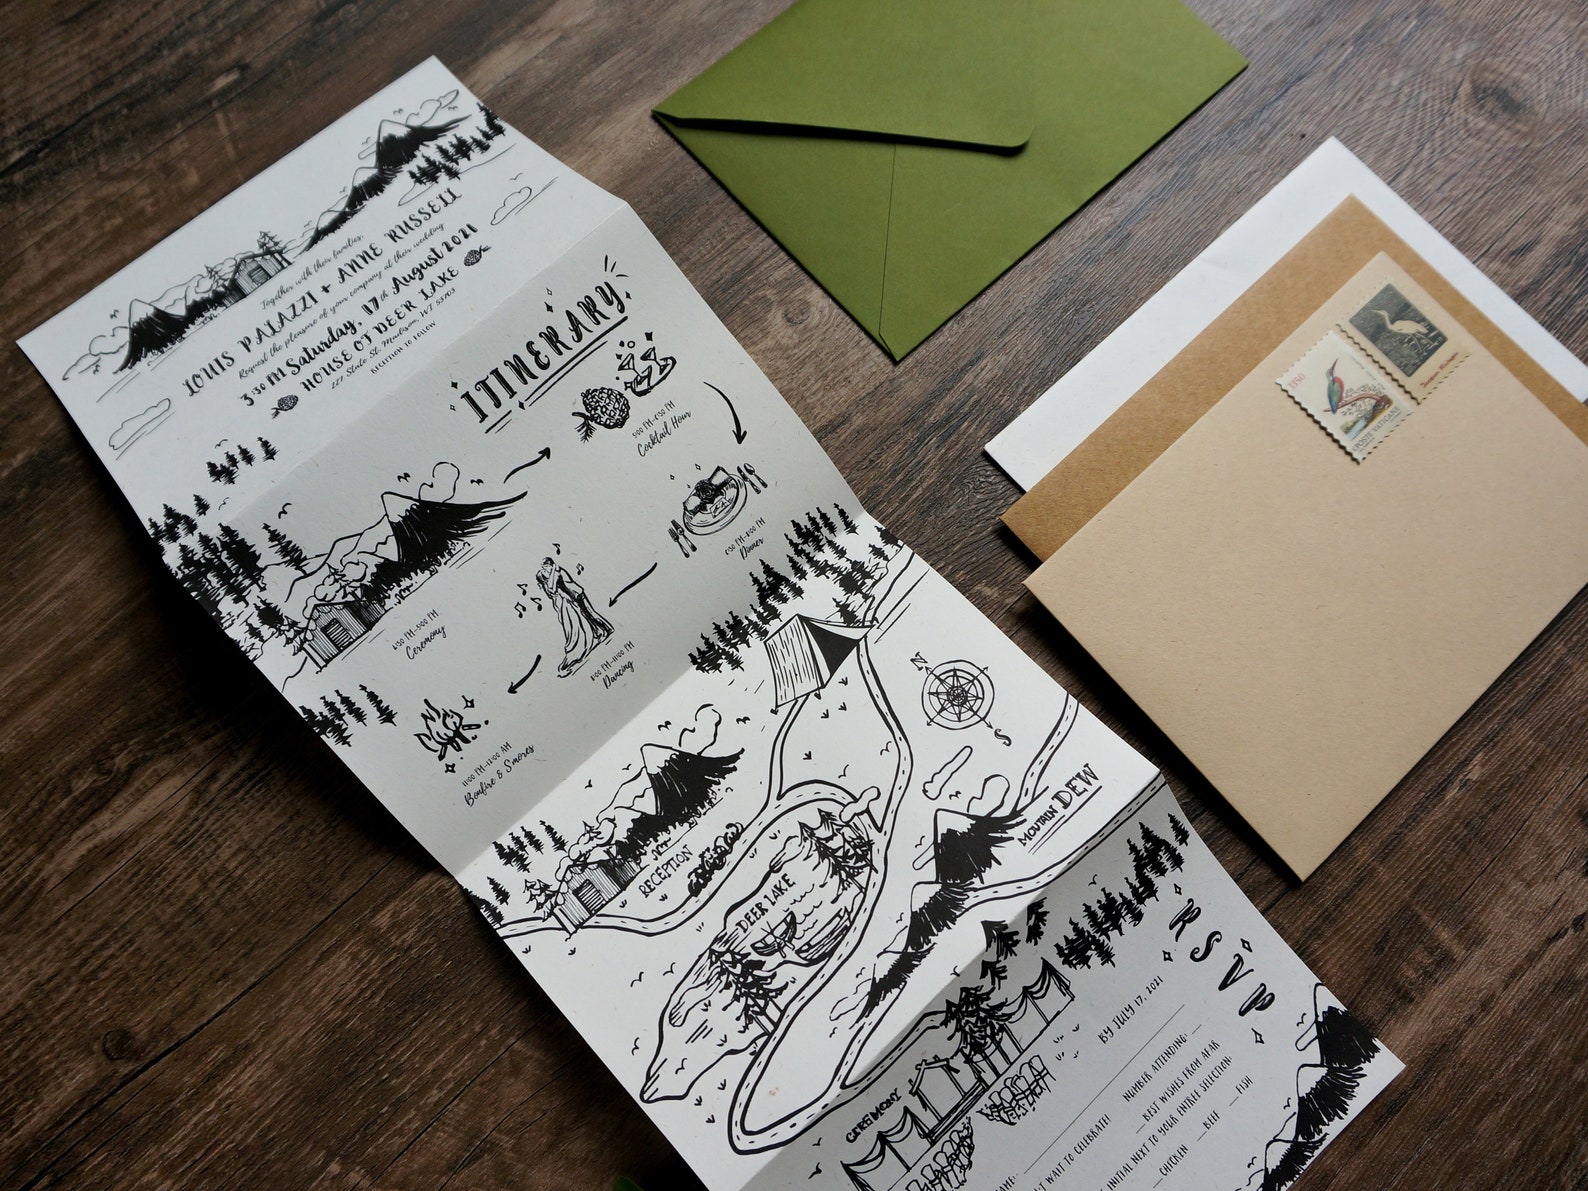 Together with their families,
LOUIS PALAZZI + ANNE RUSSELL
Request the pleasure of your company at their wedding
3:30 PM Saturday, 17th August 2021
HOUSE OF DEER LAKE
227 State St. Madison, WI 53703
RECEPTION TO FOLLOW
ITINERARY
4:30 PM-5:00 PM
Ceremony
5:00 PM-6:30 PM
Cocktail Hour
6:30 PM-8:00 PM
Dinner
8:00 PM-11:00 PM
Dancing
11:00 PM-12:00 AM
Bonfire & S'mores
N
S
RECEPTION
DEER LAKE
MOUTAIN DEW
CEREMONY
RSVP
BY JULY 17, 2021
NAME:
NUMBER ATTENDING: __
'T WAIT TO CELEBRATE!
__ BEST WISHES FROM AFAR
INITIAL NEXT TO YOUR ENTREE SELECTION:
__ CHICKEN __ BEEF __ FISH
POSTE VATICANE